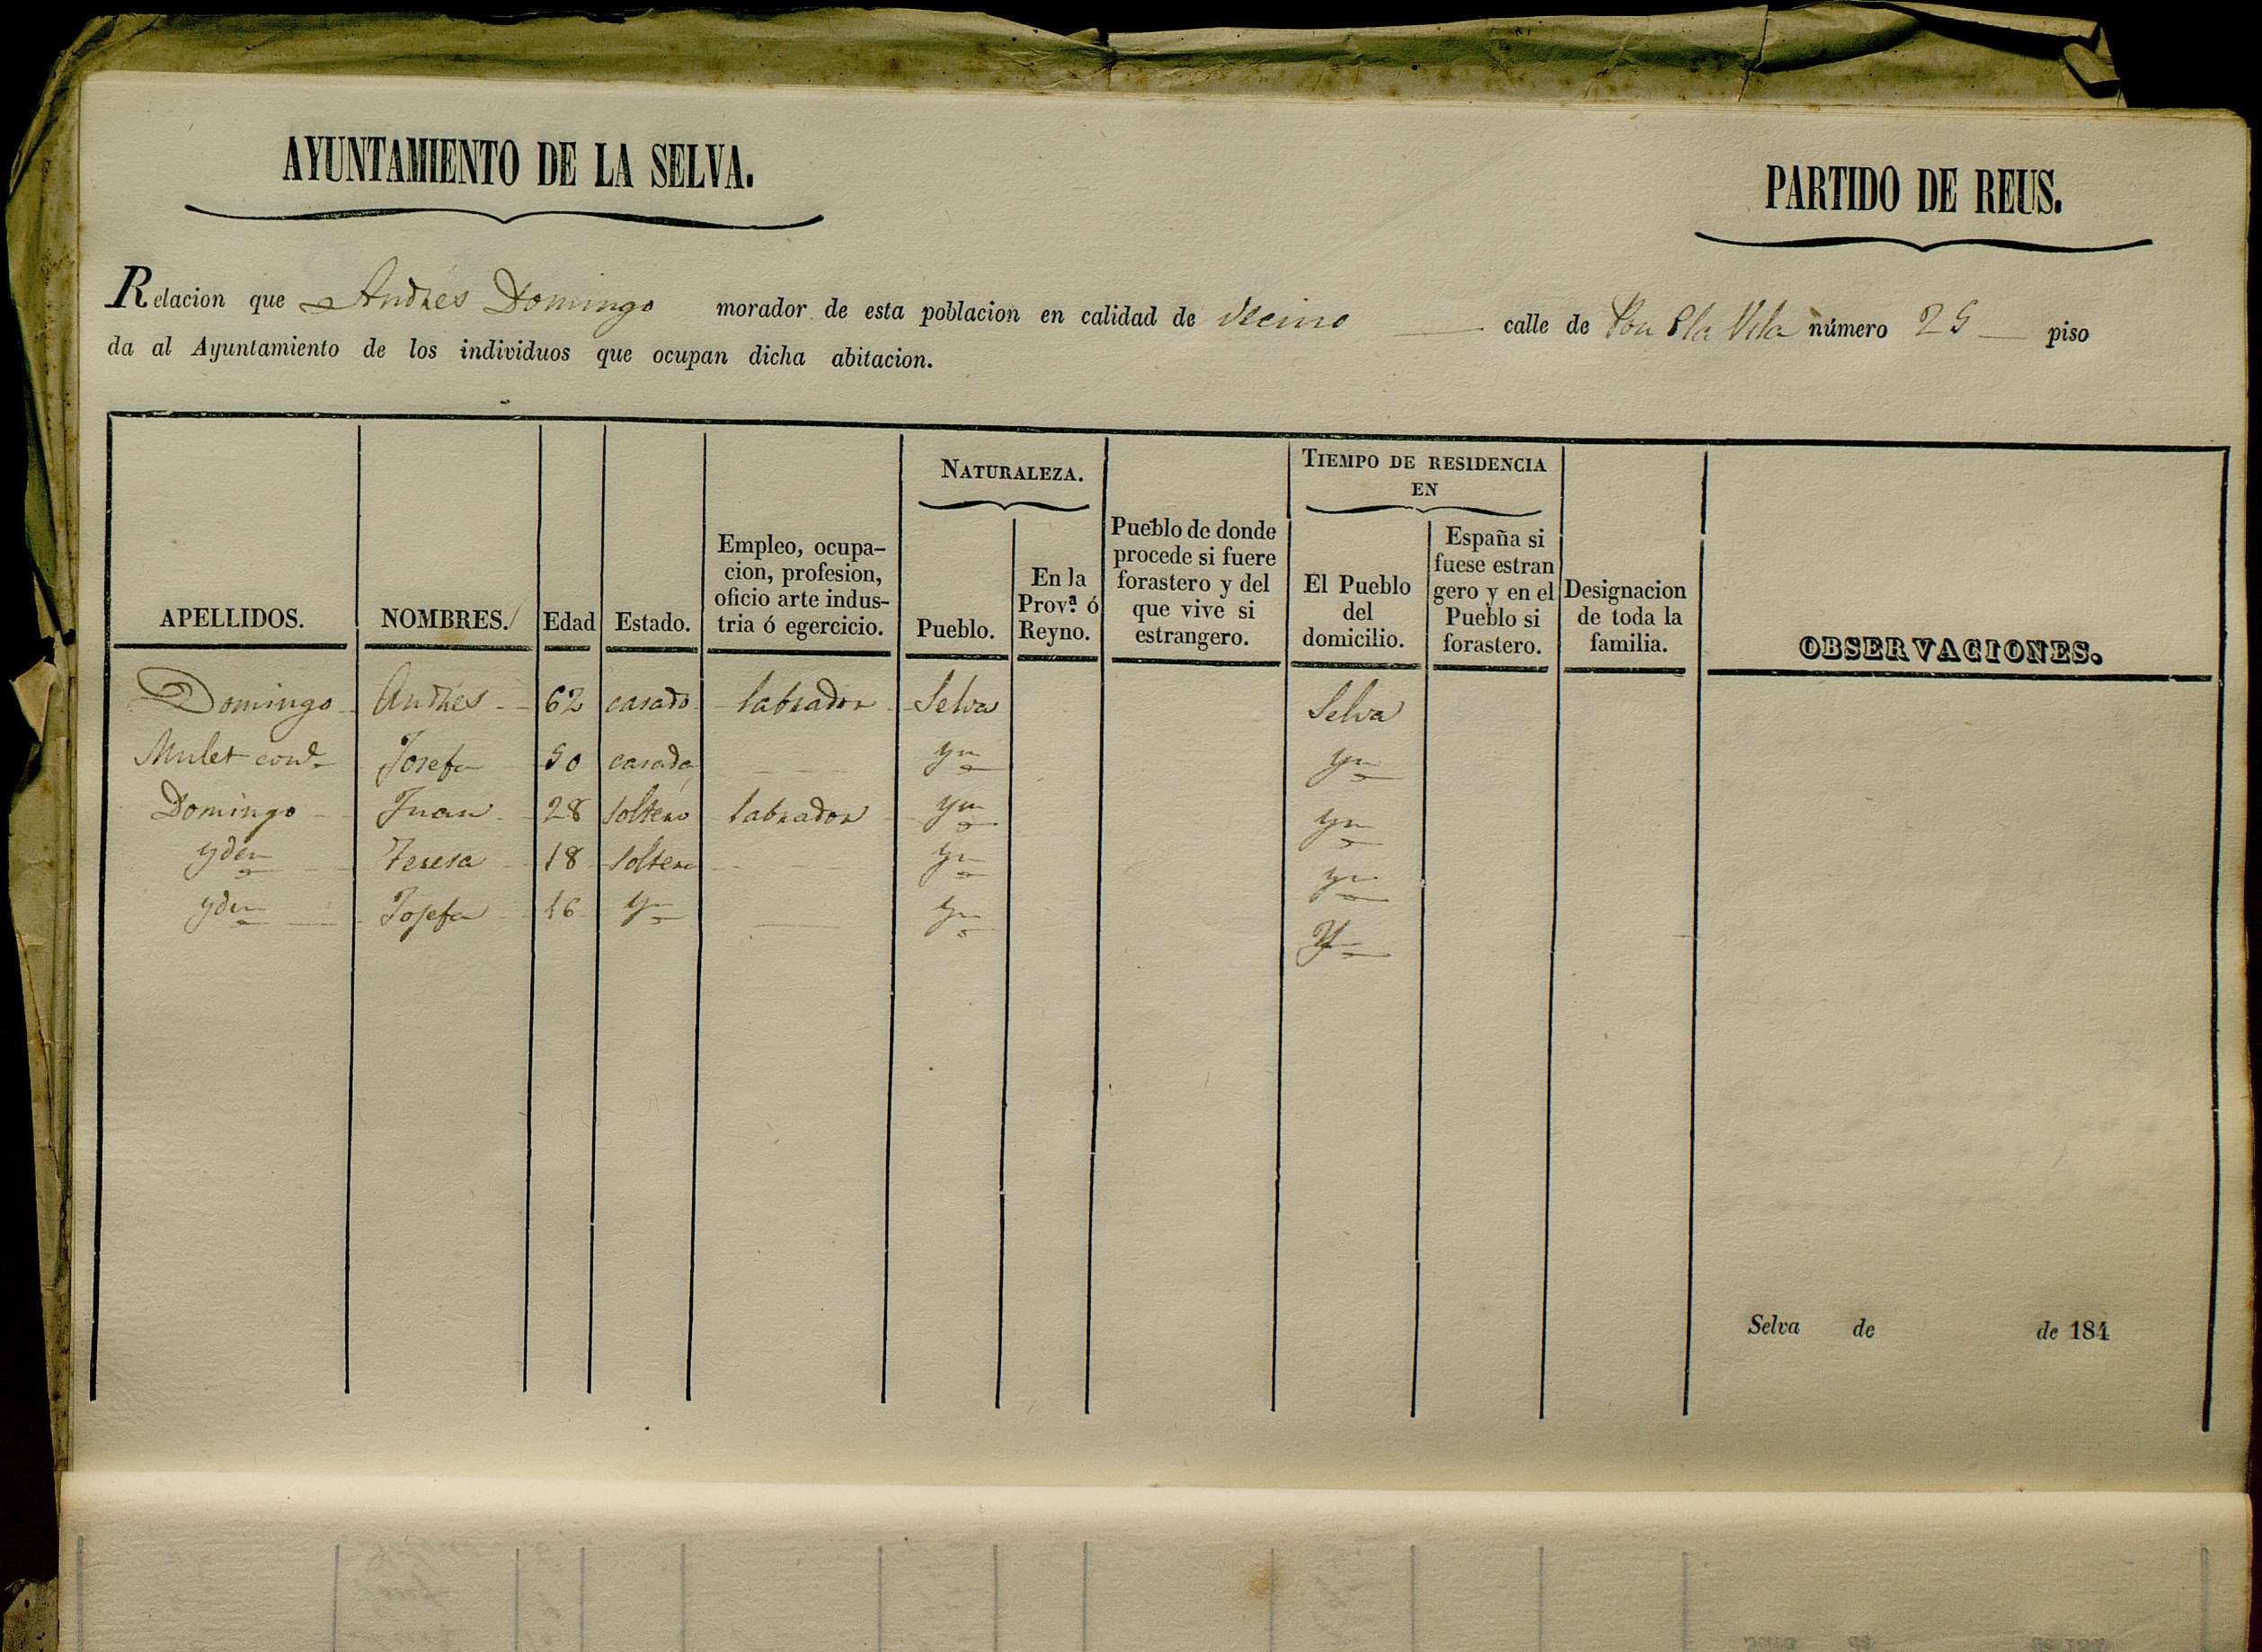 AYUNTAMIENTO DE LA SELVA.
PARTIDO DE REUS.
Relacion que Andres Domingo morador de esta poblacion en calidad de Vecino calle de la Vila número 25 piso
da al Ayuntamiento de los individuos que ocupan dicha abitacion.
NATURALEZA.
TIEMPO DE RESIDENCIA
EN
APELLIDOS.
NOMBRES.
Edad
Estado.
Empleo, ocupa-
cion, profesion,
oficio arte indus-
tria ó egercicio.
Pueblo.
En la
Prov.ª ó
Reyno.
Pueblo de donde
procede si fuere
forastero y del
que vive si
estrangero.
El Pueblo
del
domicilio.
España si
fuese estran
gero y en el
Pueblo si
forastero.
Designacion
de toda la
familia.
OBSERVACIONES.
Domingo Andres 62 casado labrador Selva Selva
Mulet Josefa 50 casada yn yn
Domingo Juan 28 soltero labrador yn yn
yden Teresa 18 soltera yn yn
yden Josefa 16 yn yn
Selva de de 184